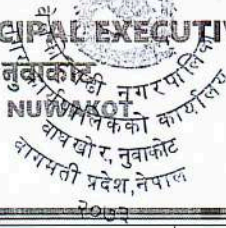 CIPAL EXECUTI
नुवाकोट
NUWAKOT
नगरपालि
कार्यपालिकको कार्यालय
वाघखोर, नुवाकोट
वागमती प्रदेश, नेपाल
२०७२